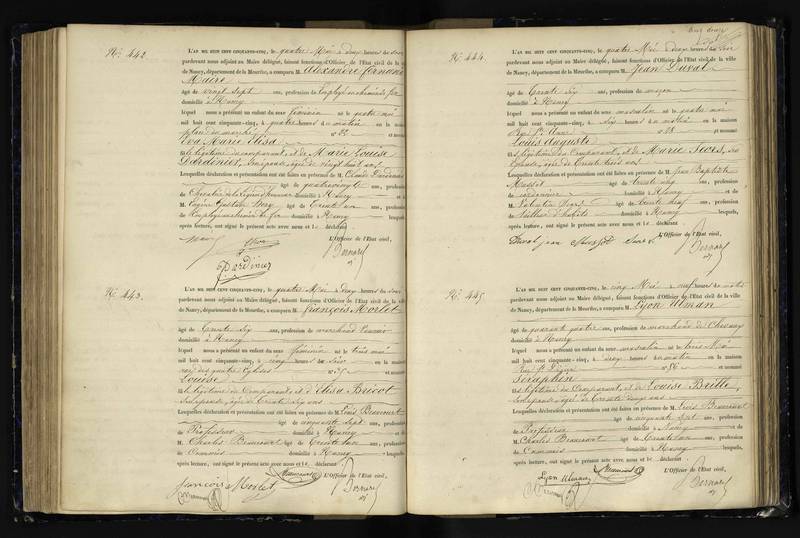 N° 442.
L'AN MIL HUIT CENT CINQUANTE-CINQ, le quatre Mai à deux heures du soir
pardevant nous adjoint au Maire délégué, faisant fonctions d'Officier de l'Etat civil de la ville
de Nancy, département de la Meurthe, a comparu M. Alexandre fernand
âgé de vingt sept ans, profession de Employé au chemin de fer
domicilié à Nancy
lequel nous a présenté un enfant du sexe féminin né le quatre mai
mil huit cent cinquante-cinq, à quatre heures du matin en la maison
place du marché n° et nommé
Eva Marie Elisa
fille légitime du comparant, et de Marie Louise
Dardenier, âgée de vingt huit ans
Lesquelles déclaration et présentation ont été faites en présence de M. Claude Dardenier
âgé de ans, profession
de Chevalier de la légion d'honneur domicilié à Nancy et de
M. Eugène Gustave âgé de trente un ans, profession
de Employé au chemin de fer domicilié à Nancy lesquels,
après lecture, ont signé le présent acte avec nous et le déclarant
L'Officier de l'Etat civil,
Bernard
Dardenier
N° 443.
L'AN MIL HUIT CENT CINQUANTE-CINQ, le quatre Mai à deux heures du soir
pardevant nous adjoint au Maire délégué, faisant fonctions d'Officier de l'Etat civil de la ville
de Nancy, département de la Meurthe, a comparu M. françois Morlot
âgé de trente six ans, profession de marchand
domicilié à Nancy
lequel nous a présenté un enfant du sexe féminin né le trois mai
mil huit cent cinquante-cinq, à cinq heures du soir en la maison
rue des quatre Eglises n° 35 et nommé
Louise
fille légitime du Comparant, et d'Elisa Bricot
son épouse, âgée de trente six ans
Lesquelles déclaration et présentation ont été faites en présence de M. Louis Beaucourt
âgé de cinquante sept ans, profession
de Professeur domicilié à Nancy et de
M. Charles Beaucourt âgé de trente un ans, profession
de Commis domicilié à Nancy lesquels,
après lecture, ont signé le présent acte avec nous et le déclarant
L'Officier de l'Etat civil,
François Morlot
Bernard
N° 444.
L'AN MIL HUIT CENT CINQUANTE-CINQ, le quatre Mai à deux heures du soir
pardevant nous adjoint au Maire délégué, faisant fonctions d'Officier de l'Etat civil de la ville
de Nancy, département de la Meurthe, a comparu M. Jean Duval
âgé de trente six ans, profession de maçon
domicilié à Nancy
lequel nous a présenté un enfant du sexe masculin né le quatre mai
mil huit cent cinquante-cinq, à six heures du matin en la maison
Rue Ste Anne n° 28 et nommé
Louis Auguste
fils légitime du Comparant, et de Marie
Epouse, âgée de trente trois ans
Lesquelles déclaration et présentation ont été faites en présence de M. Jean Baptiste
âgé de trente ans, profession
de cordonnier domicilié à Nancy et de
M. Valentin âgé de trente neuf ans, profession
de Tailleur d'habits domicilié à Nancy lesquels,
après lecture, ont signé le présent acte avec nous et le déclarant
L'Officier de l'Etat civil,
Duval jean
Bernard
N° 445.
L'AN MIL HUIT CENT CINQUANTE-CINQ, le cinq Mai à neuf heures du matin
pardevant nous adjoint au Maire délégué, faisant fonctions d'Officier de l'Etat civil de la ville
de Nancy, département de la Meurthe, a comparu M. Lyon Ulman
âgé de quarante quatre ans, profession de marchand de Chevaux
domicilié à Nancy
lequel nous a présenté un enfant du sexe masculin né le trois Mai
mil huit cent cinquante-cinq, à deux heures du matin en la maison
Rue St Dizier n° 86 et nommé
Séraphin
fils légitime du Comparant, et de Louise Brille
son épouse, âgée de trente ans
Lesquelles déclaration et présentation ont été faites en présence de M. Louis Beaucourt
âgé de cinquante sept ans, profession
de Professeur domicilié à Nancy et de
M. Charles Beaucourt âgé de trente un ans, profession
de Commis domicilié à Nancy lesquels,
après lecture, ont signé le présent acte avec nous et le déclarant
L'Officier de l'Etat civil,
Lyon Ulman
Bernard